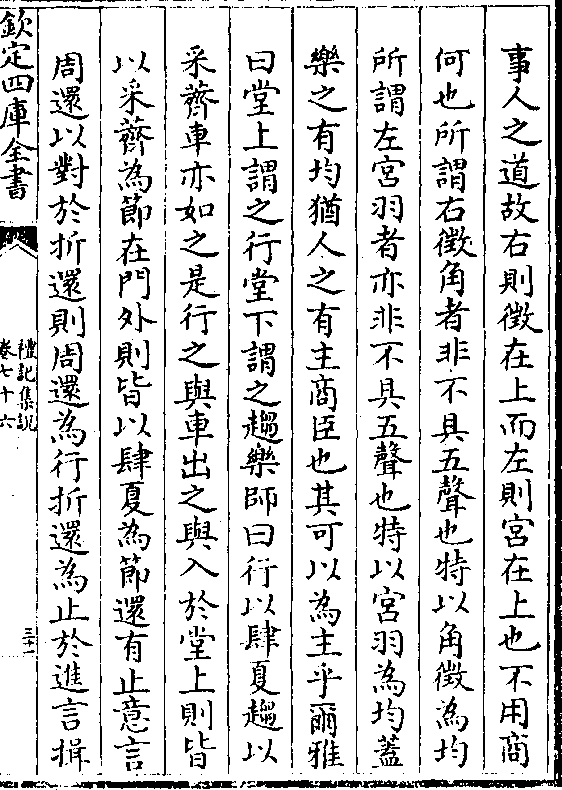 事人之道故右則徵在上而左則宮在上也不用商
何也所謂右徵角者非不具五聲也特以角徵為均
所謂左宮羽者亦非不具五聲也特以宮羽為均蓋
樂之有均猶人之有主商臣也其可以為主乎爾雅
曰堂上謂之行堂下謂之趨樂師曰行以肆夏趨以
采薺車亦如之是行之與車出之與入於堂上則皆
以采薺為節在門外則皆以肆夏為節還有止意言
周還以對於折還則周還為行折還為止於進言揖
欽定四庫全書
禮記集說
卷七十六